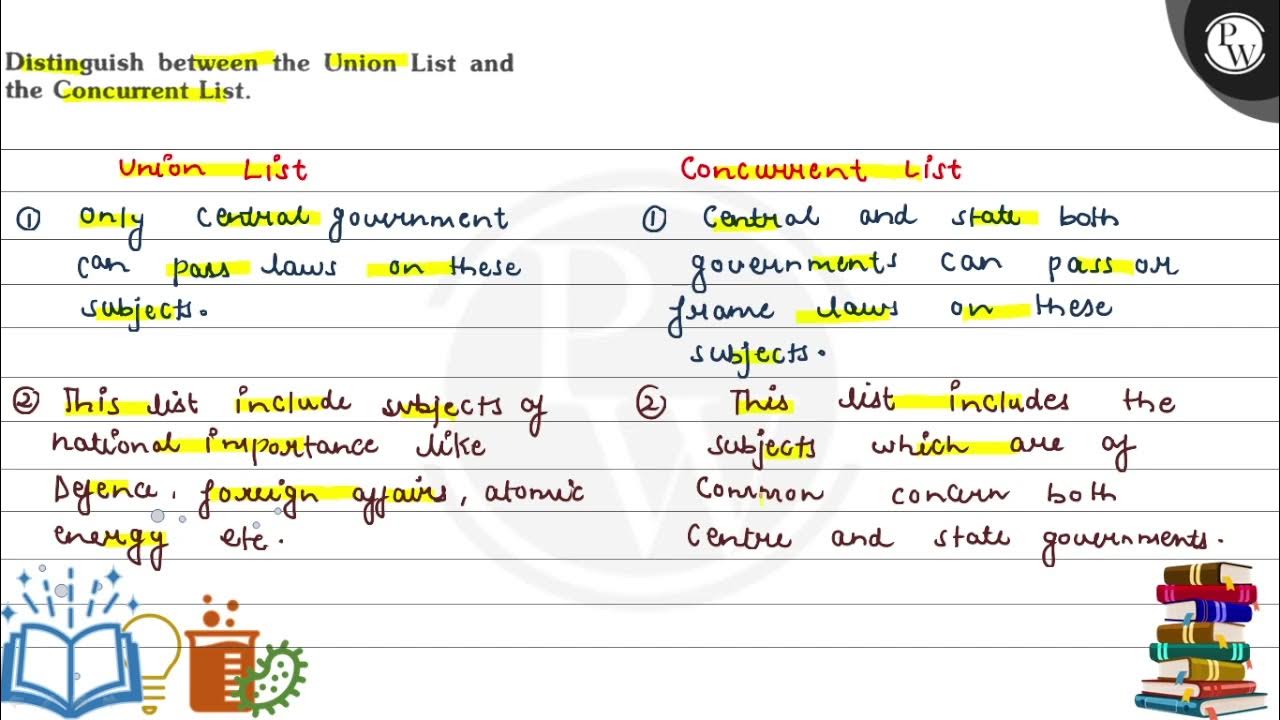 Distinguish between the Union List and
the Concurrent List.
PW
Union List
① Only central government
can pass laws on these
subjects.
② This list include subjects of
national importance like
Defence, foreign affairs, atomic
energy etc.
Concurrent List
① Central and state both
governments can pass or
frame laws on these
subjects.
② This list includes the
subjects which are of
common concern both
Centre and state governments.
PW